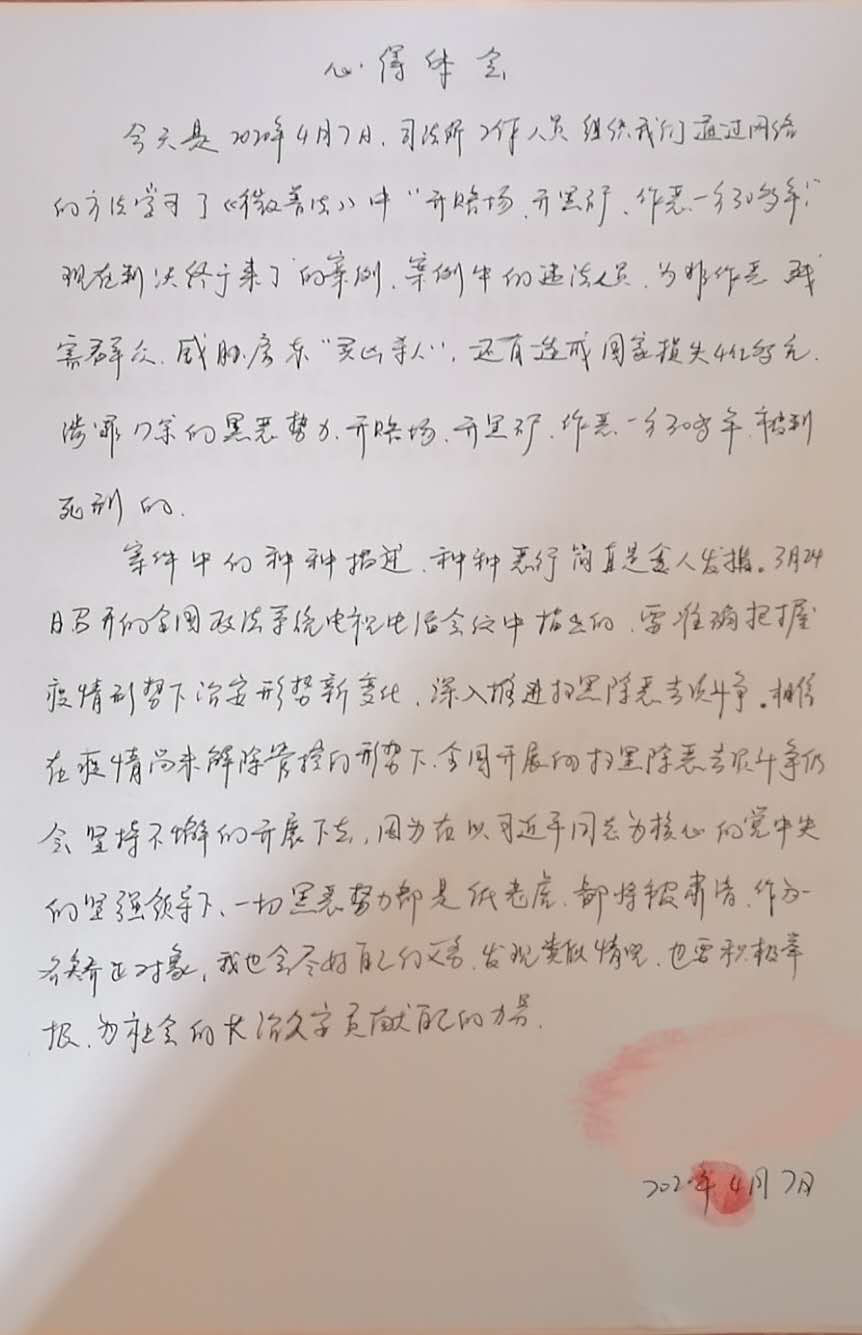 心得体会
今天是2020年4月7日，司法所工作人员组织我们通过网络
的方法学习了《微普法》中"开赌场、开黑矿、作恶一方30多年！"
现在判决终于来了"的案例，案例中的违法人员，为非作恶 残
害群众、威胁房东"买凶杀人"，还有造成国家损失4亿多元.
涉罪17宗的黑恶势力、开赌场、开黑矿、作恶一方30多年，被判
死刑的.
案件中的种种描述、种种恶行简直是令人发指。3月24
日召开的全国政法系统电视电话会议中指出的，要准确把握
疫情形势下治安形势新变化，深入推进扫黑除恶专项斗争。相信
在疫情尚未解除管控的形势下，全国开展的扫黑除恶专项斗争仍
会坚持不懈的开展下去，因为在以习近平同志为核心的党中央
的坚强领导下、一切黑恶势力都是纸老虎，都将被肃清，作为一
名矫正对象，我也会尽好自己的义务，发现类似情况，也要积极举
报，为社会的长治久安贡献自己的力量.
2020年4月7日